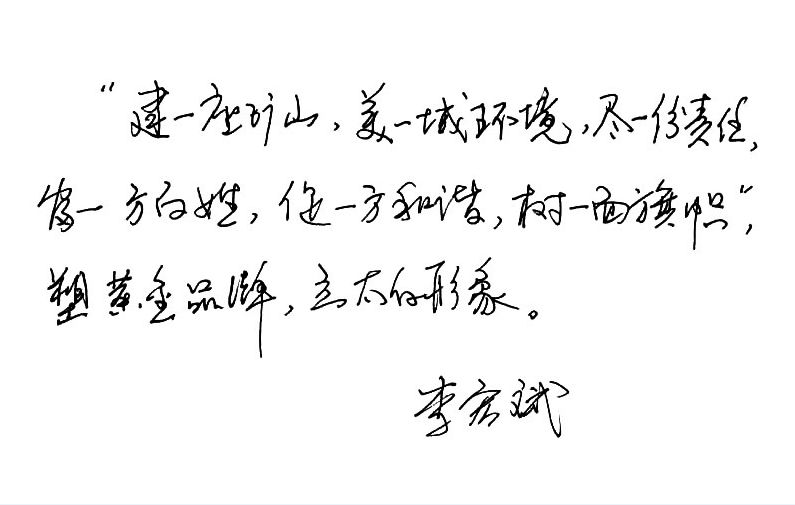 “建一座矿山,美一域环境,尽一份责任,
富一方百姓,促一方和谐,树一面旗帜”,
塑黄金品牌,立太白形象。
李宏斌